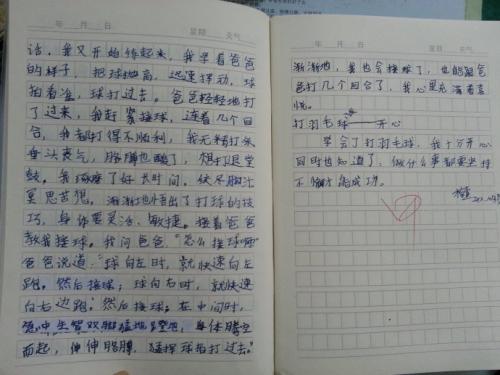 年 月 日 星期 天气
话，我又开始练起来，我学着爸爸
的样子，把球抛高，迅速挥动，球
拍看准，球打过去。爸爸轻轻地打
了过来，我赶紧接球，连着几个回
合，我都打得不顺利，我无精打采
垂头丧气，胳膊也酸了，想打退堂
鼓。我琢磨了好长时间，绞尽脑汁
冥思苦想，渐渐地悟出了打球的技
巧，身体要灵活、敏捷。接着爸爸
教我接球。我问爸爸，“怎么接球啊”
爸爸说道：“球向左时，就快速向左
跑。然后接球；球向右时，就快速
向右边跑，然后接球；在中间时，
双脚猛地 身体腾空
而起，伸伸胳膊，猛挥球拍打过去。”
年 月 日 星期 天气
渐渐地，我也会接球了，也能跟爸
爸打几个回合了，我心里充满着喜
悦。
打羽毛球——开心
学会了打羽毛球，我十万开心
同时也知道了：做什么事都要坚持
不懈才能成功。